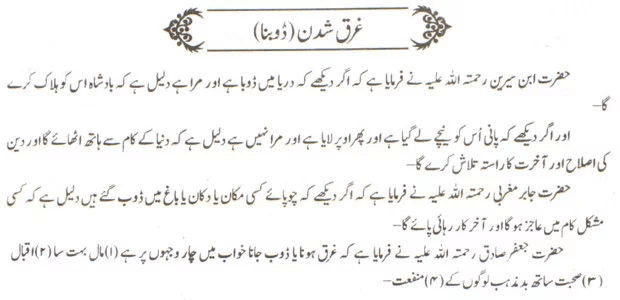 غرق شدن (ڈوبنا)
حضرت ابن سیرین رحمتہ اللہ علیہ نے فرمایا ہے کہ اگر دیکھے کہ دریا میں ڈوبا ہے اور مرا ہے دلیل ہے کہ بادشاہ اس کو ہلاک کرے
گا–
اور اگر دیکھے کہ پانی اُس کو نیچے لے گیا ہے اور پھر اوپر لایا ہے اور مرا نہیں ہے دلیل ہے کہ دنیا کے کام سے ہاتھ اٹھائے گا اور دین
کی اصلاح اور آخرت کا راستہ تلاش کرے گا–
حضرت جابر مغربی رحمتہ اللہ علیہ نے فرمایا ہے کہ اگر دیکھے کہ چوپائے کسی مکان یا دکان یا باغ میں ڈوب گئے ہیں دلیل ہے کہ کسی
مشکل کام میں عاجز ہو گا اور آخر کار رہائی پائے گا–
حضرت جعفر صادق رحمتہ اللہ علیہ نے فرمایا ہے کہ غرق ہونا یا ڈوب جانا خواب میں چار وجہوں پر ہے (۱) مال بہت سا (۲) اقبال
(۳) صحبت ساتھ بد مذہب لوگوں کے (۴) منفعت–